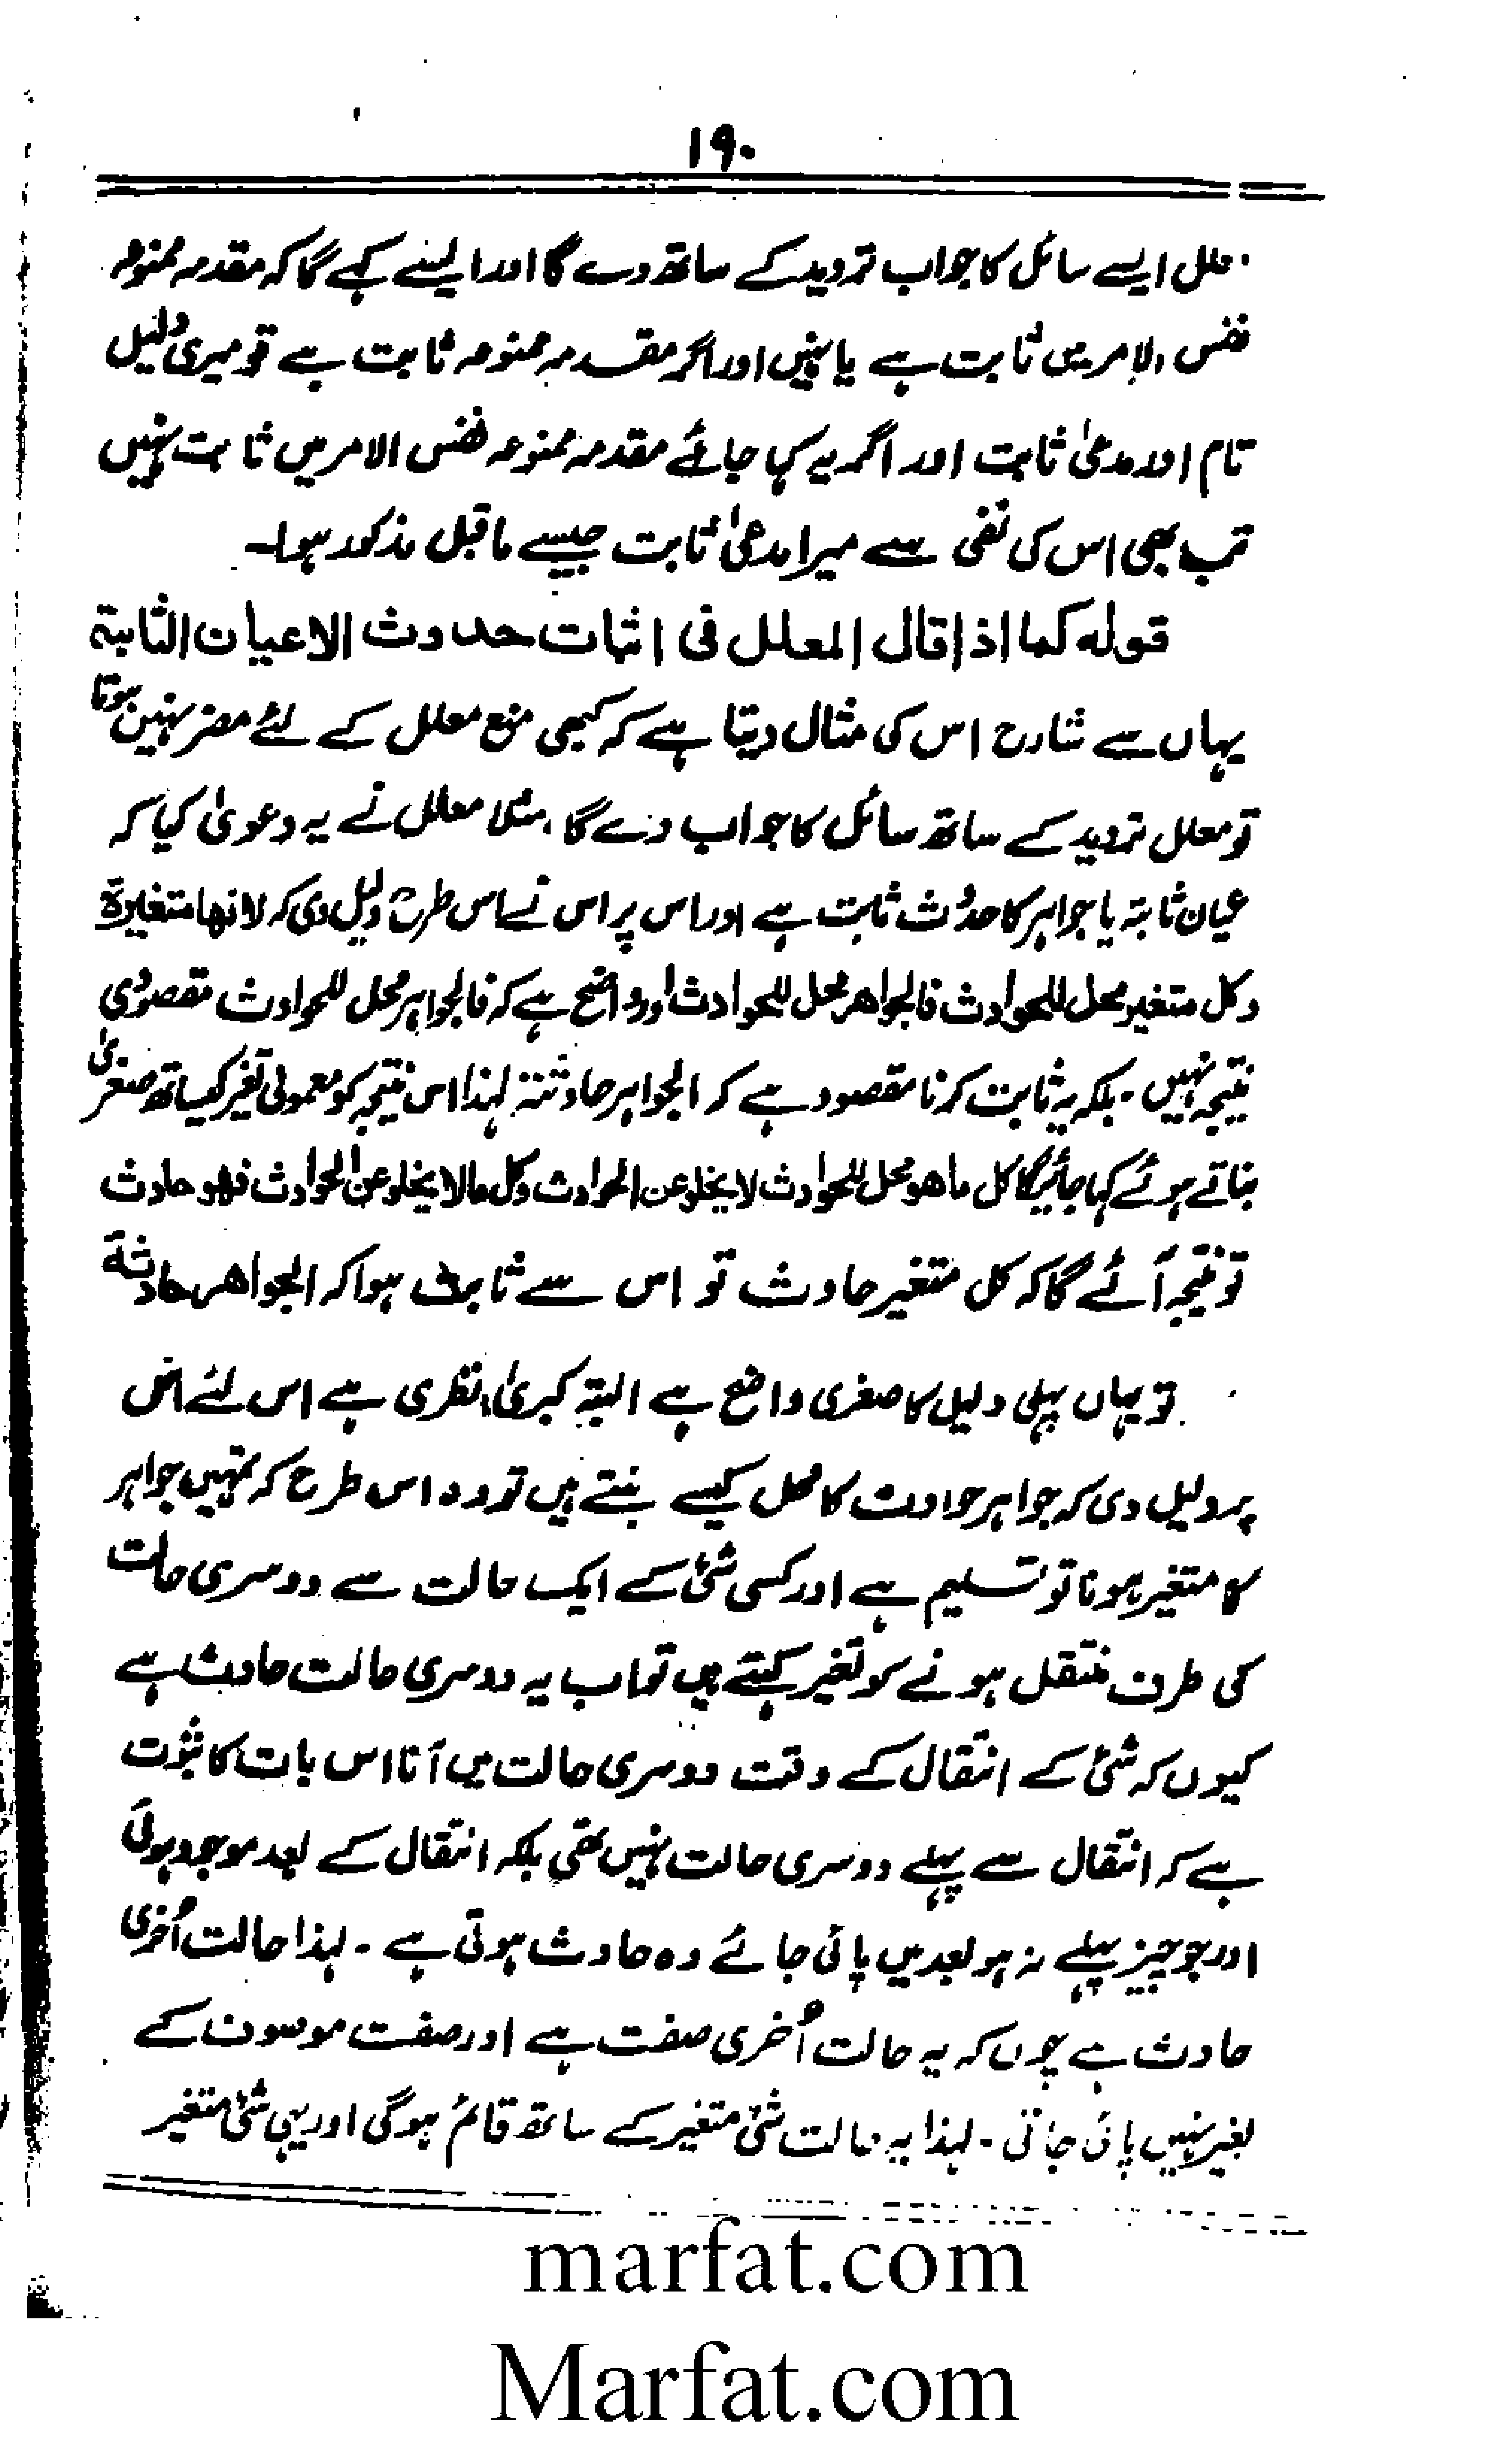 ۱۹۰
معلل ایسے سائل کا جواب تردید کے ساتھ دے گا اور ایسے کہے گا کہ مقدمہ ممنوعہ
نفس الامر میں ثابت ہے یا نہیں اور اگر مقدمہ ممنوعہ ثابت ہے تو میری دلیل
تام اور مدعیٰ ثابت اور اگر یہ کہا جائے مقدمہ ممنوعہ نفس الامر میں ثابت نہیں
تب بھی اس کی نفی سے میرا مدعیٰ ثابت جیسے ماقبل مذکور ہوا۔
قوله كما اذا قال المعلل فى اثبات حدوث الاعيان الثابتة
یہاں سے شارح اس کی مثال دیتا ہے کہ کبھی منع معلل کے لئے مضر نہیں ہوتا
تو معلل تردید کے ساتھ سائل کا جواب دے گا، مثلا معلل نے یہ دعویٰ کیا کہ
عیان ثابتہ یا جواہر کا حدُوث ثابت ہے اور اس پر اس نے اس طرح دلیل دی کہ لانها متغيرة
وكل متغير محل للحوادث فالجواهر محل للحوادث اور واضح ہے کہ فالجواہر محل للحوادث مقصودی
نتیجہ نہیں ۔ بلکہ یہ ثابت کرنا مقصود ہے کہ الجواہر حادثۃ لہذا اس نتیجہ کو معمولی تغیر کیساتھ صغریٰ
بناتے ہوئے کہا جائیگا کل ماهو محل للحوادث لا يخلو عن الحوادث وكل مالا يخلو عن الحوادث فهو حادث
تو نتیجہ آئے گا کہ کل متغیر حادث تو اس سے ثابت ہوا کہ الجواهر حادثة
تو یہاں پہلی دلیل کا صغری واضح ہے البتہ کبریٰ نظری ہے اس لئے اس
پر دلیل دی کہ جواہر حوادث کا محل کیسے بنتے ہیں تو وہ اس طرح کہ تمہیں جواہر
کا متغیر ہونا تو تسلیم ہے اور کسی شئ کے ایک حالت سے دوسری حالت
کی طرف منتقل ہونے کو تغیر کہتے ہیں تو اب یہ دوسری حالت حادث ہے
کیوں کہ شئ کے انتقال کے وقت دوسری حالت میں آنا اس بات کا ثبوت
ہے کہ انتقال سے پہلے دوسری حالت نہیں تھی بلکہ انتقال کے بعد موجود ہوئی
اور جو چیز پہلے نہ ہو بعد میں پائی جائے وہ حادث ہوتی ہے ۔ لہذا حالت اُخری
حادث ہے چوں کہ یہ حالت اُخری صفت ہے اور صفت موصوف کے
بغیر نہیں پائی جاتی ۔ لہذا یہ حالت شئ متغیر کے ساتھ قائم ہوگی اور یہی شئ متغیر
marfat.com
Marfat.com